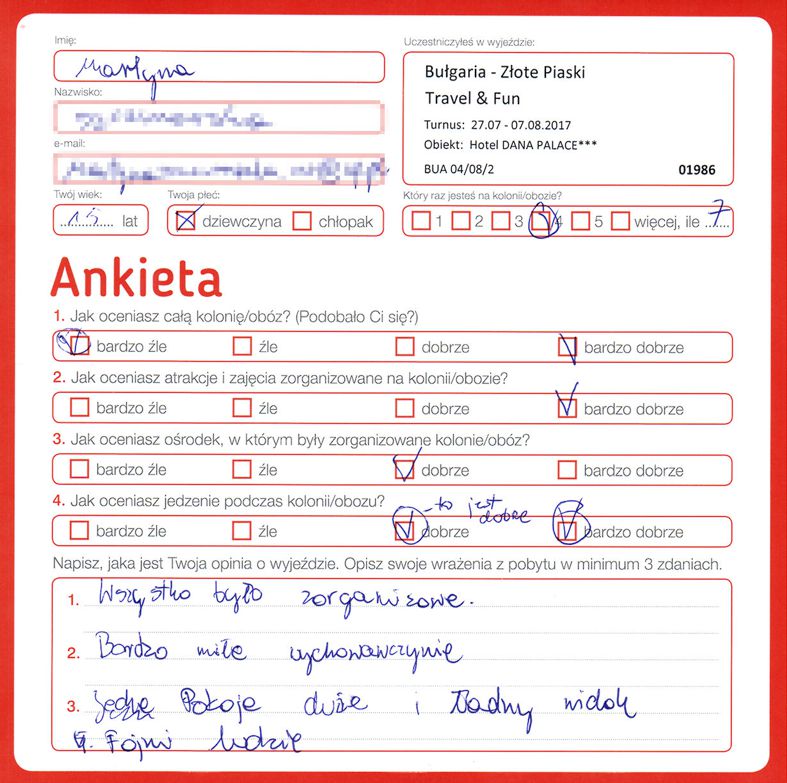 Imię:
Martyna
Uczestniczyłeś w wyjeździe:
Bułgaria - Złote Piaski
Travel & Fun
Turnus: 27.07 - 07.08.2017
Obiekt: Hotel DANA PALACE***
BUA 04/08/2 01986
Nazwisko:
e-mail:
Twój wiek: Twoja płeć: Który raz jesteś na kolonii/obozie?
15 lat dziewczyna chłopak 1 2 3 4 5 więcej, ile 7
Ankieta
1. Jak oceniasz całą kolonię/obóz? (Podobało Ci się?)
bardzo źle źle dobrze bardzo dobrze
2. Jak oceniasz atrakcje i zajęcia zorganizowane na kolonii/obozie?
bardzo źle źle dobrze bardzo dobrze
3. Jak oceniasz ośrodek, w którym były zorganizowane kolonie/obóz?
bardzo źle źle dobrze bardzo dobrze
4. Jak oceniasz jedzenie podczas kolonii/obozu?
- to jest dobrze
bardzo źle źle dobrze bardzo dobrze
Napisz, jaka jest Twoja opinia o wyjeździe. Opisz swoje wrażenia z pobytu w minimum 3 zdaniach.
1. Wszystko było zorganizowe.
2. Bardzo miłe wychowawczynie
3. Pokoje duże i ładny widok
4. Fajni ludzie